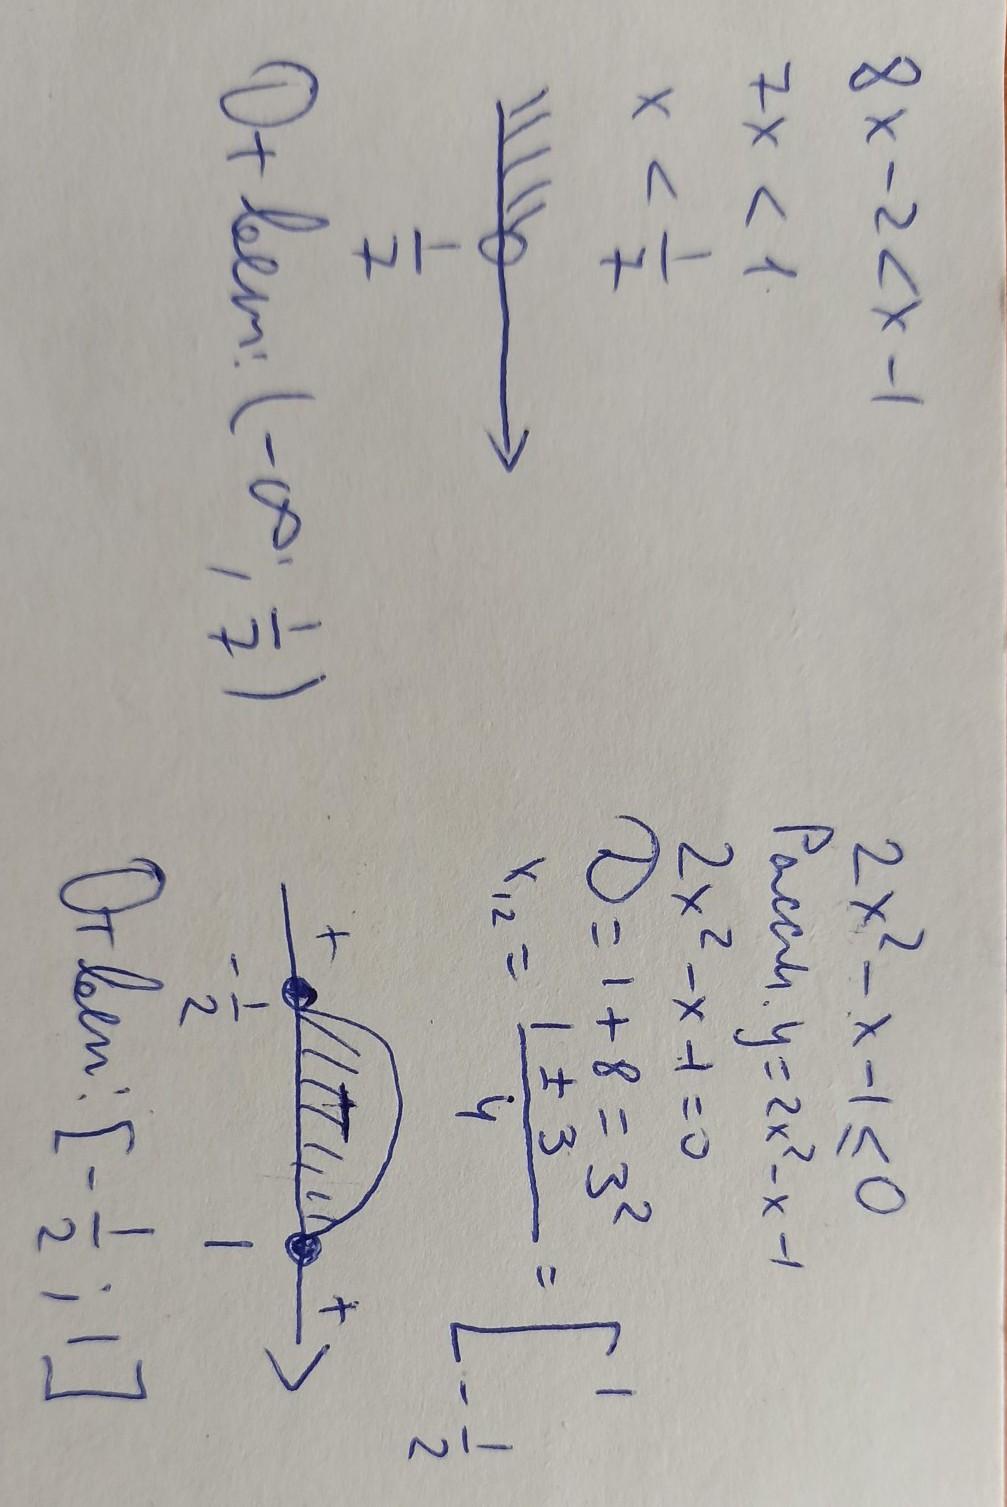 8x-2<x-1
7x<1
x<1/7
1/7
Ответ: (-∞; 1/7)
2x²-x-1≤0
Рассм. y=2x²-x-1
2x²-x-1=0
D=1+8=3²
x₁₂=(1±3)/4=[1 -1/2
+ - +
-1/2 1
Ответ: [-1/2; 1]